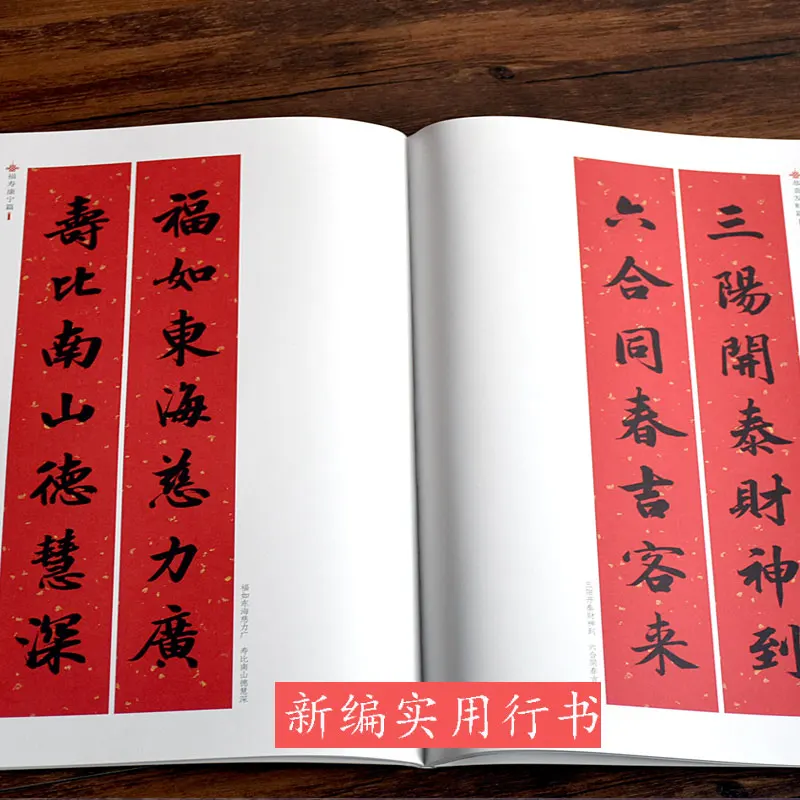 福寿康宁篇
福如東海慈力廣
壽比南山德慧深
福如东海慈力广 寿比南山德慧深
三陽開泰財神到
六合同春吉客来
三阳开泰财神到 六合同春吉
新编实用行书